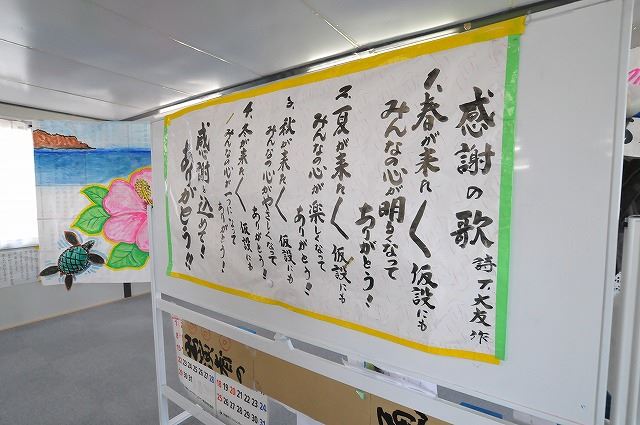 感謝の歌
詩 T 大友 作
1、春が来た く 仮設にも
みんなの心が明るくなって
ありがとう!
2、夏が来た く 仮設にも
みんなの心が楽しくなって
ありがとう!
3、秋が来た く 仮設にも
みんなの心がやさしくなって
ありがとう!
4、冬が来た く 仮設にも
みんなの心が一つになって
ありがとう!
感謝を込めて!
ありがとう!!